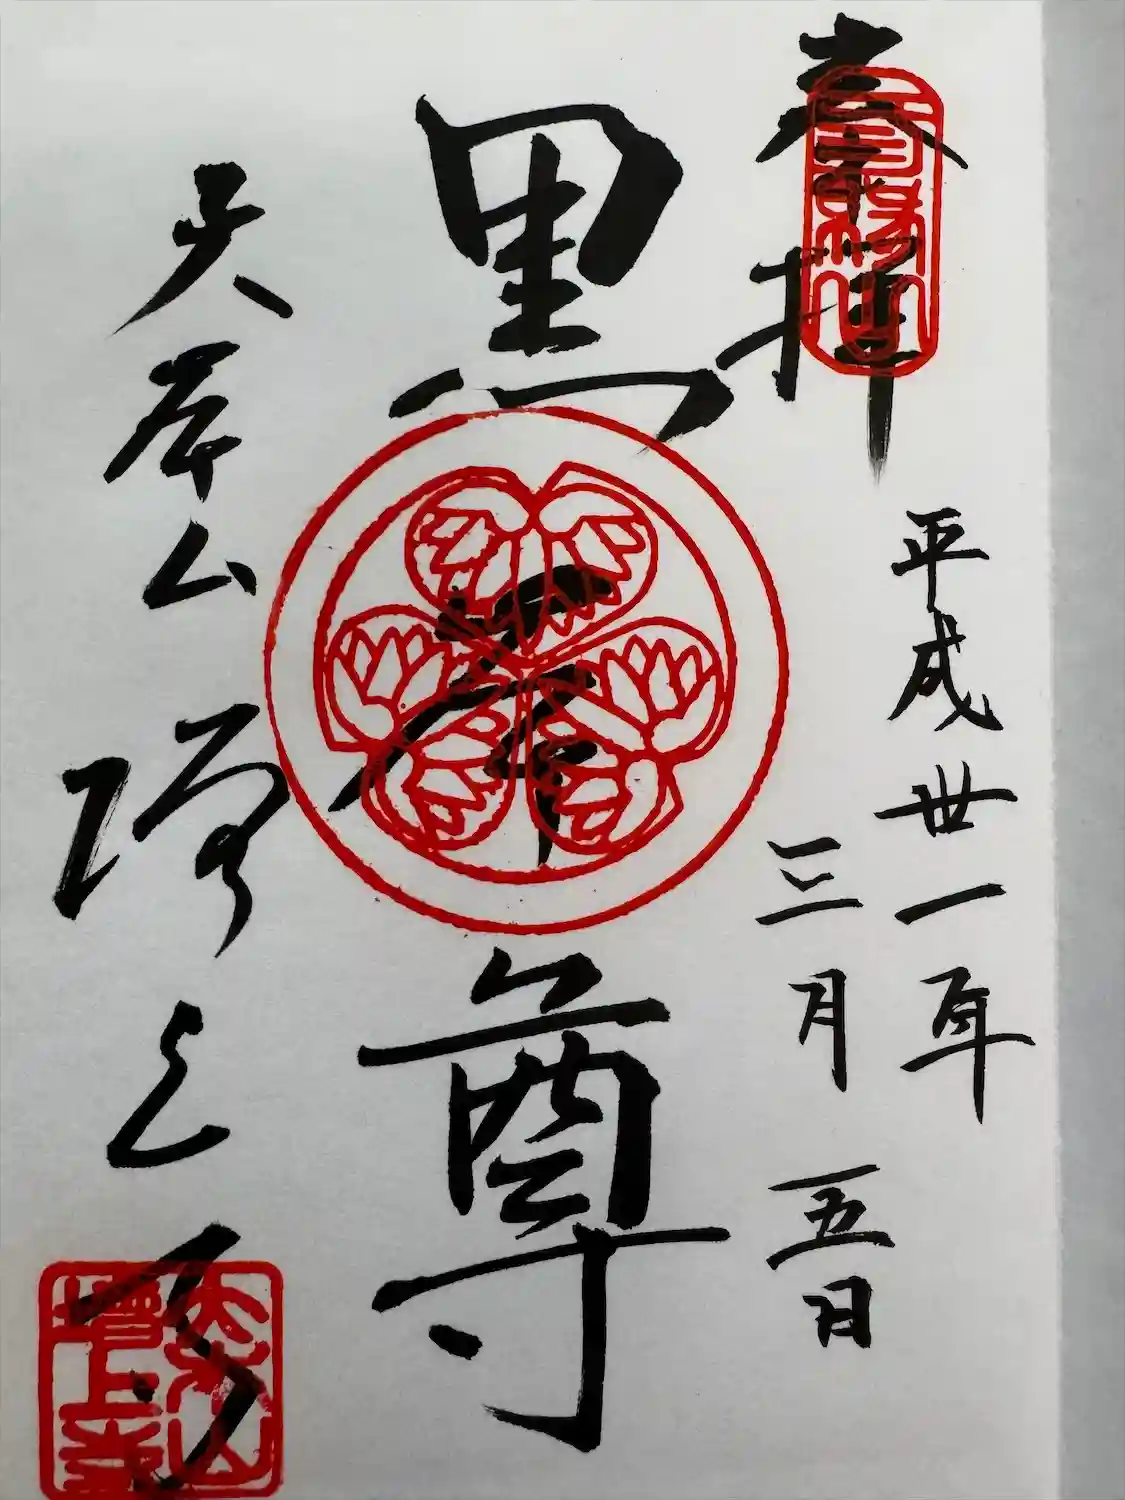 奉拝
平成卅一年
三月五日
黒本尊
大本山増上寺
三縁山
大本山
増上寺